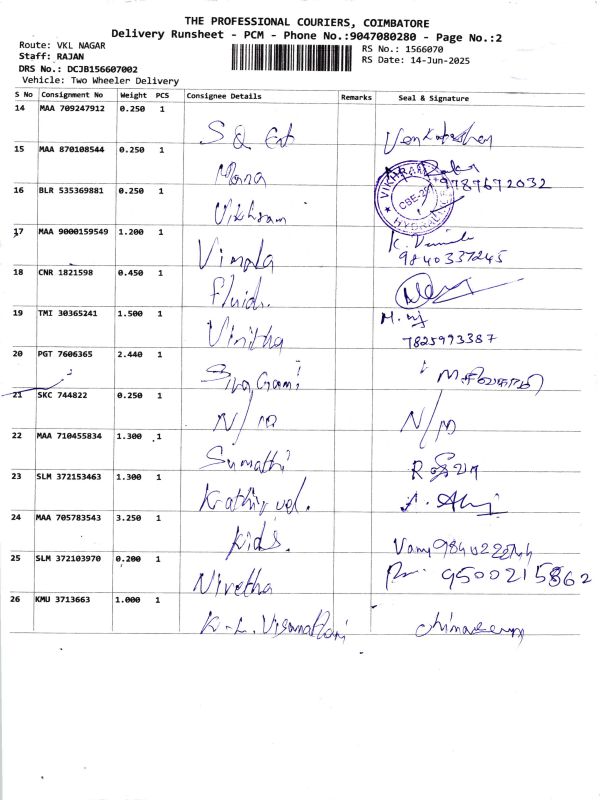 THE PROFESSIONAL COURIERS, COIMBATORE
Delivery Runsheet - PCM - Phone No.:9047080280 - Page No.:2
Route: VKL NAGAR
RS No.: 1566070
Staff: RAJAN
RS Date: 14-Jun-2025
DRS No.: DCJB156607002
Vehicle: Two Wheeler Delivery
S No Consignment No Weight PCS Consignee Details Remarks Seal & Signature
14 MAA 709247912 0.250 1 S Q
15 MAA 870108544 0.250 1 9787672032
16 BLR 535369881 0.250 1 Vikhram
VIKHRAM
CBE-29
17 MAA 9000159549 1.200 1 Vimala K.
9840337245
18 CNR 1821598 0.450 1 Fluid
19 TMI 30365241 1.500 1 Vinitha M.
7825993387
20 PGT 7606365 2.440 1 Siva Gami
21 SKC 744822 0.250 1 N/A N/A
22 MAA 710455834 1.300 1 Sumathi
23 SLM 372153463 1.300 1 Kathirvel.
24 MAA 705783543 3.250 1 Kids.
25 SLM 372103970 0.200 1 Nivetha 9500215862
26 KMU 3713663 1.000 1 K.L. Viswanathan